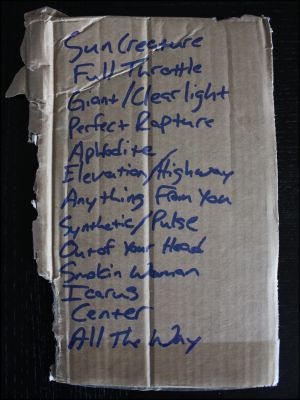 Sun Creature
Full Throttle
Giant/Clearlight
Perfect Rapture
Aphodite
Elevation/Highway
Anything From You
Synthetic/Pulse
Out of Your Head
Smokin Woman
Icarus
Center
All The Way